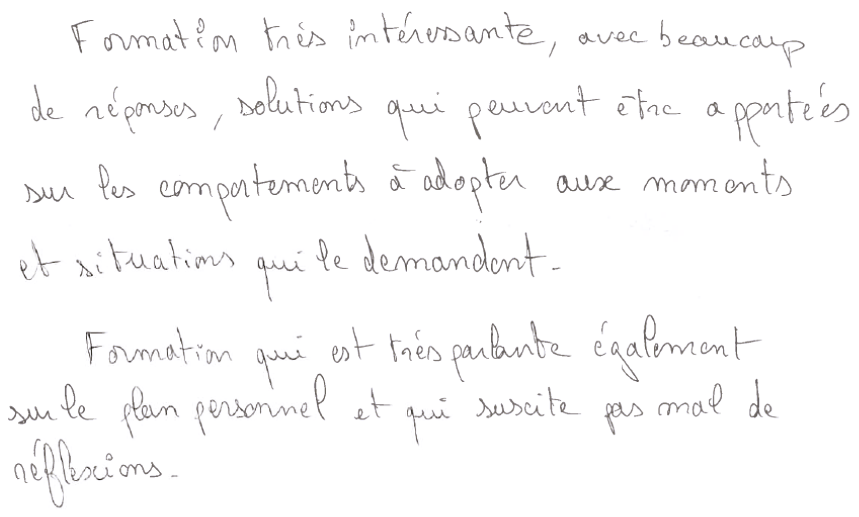 Formation très intéressante, avec beaucoup
de réponses, solutions qui peuvent être apportées
sur les comportements à adopter aux moments
et situations qui le demandent.
Formation qui est très parlante également
sur le plan personnel et qui suscite pas mal de
réflexions.